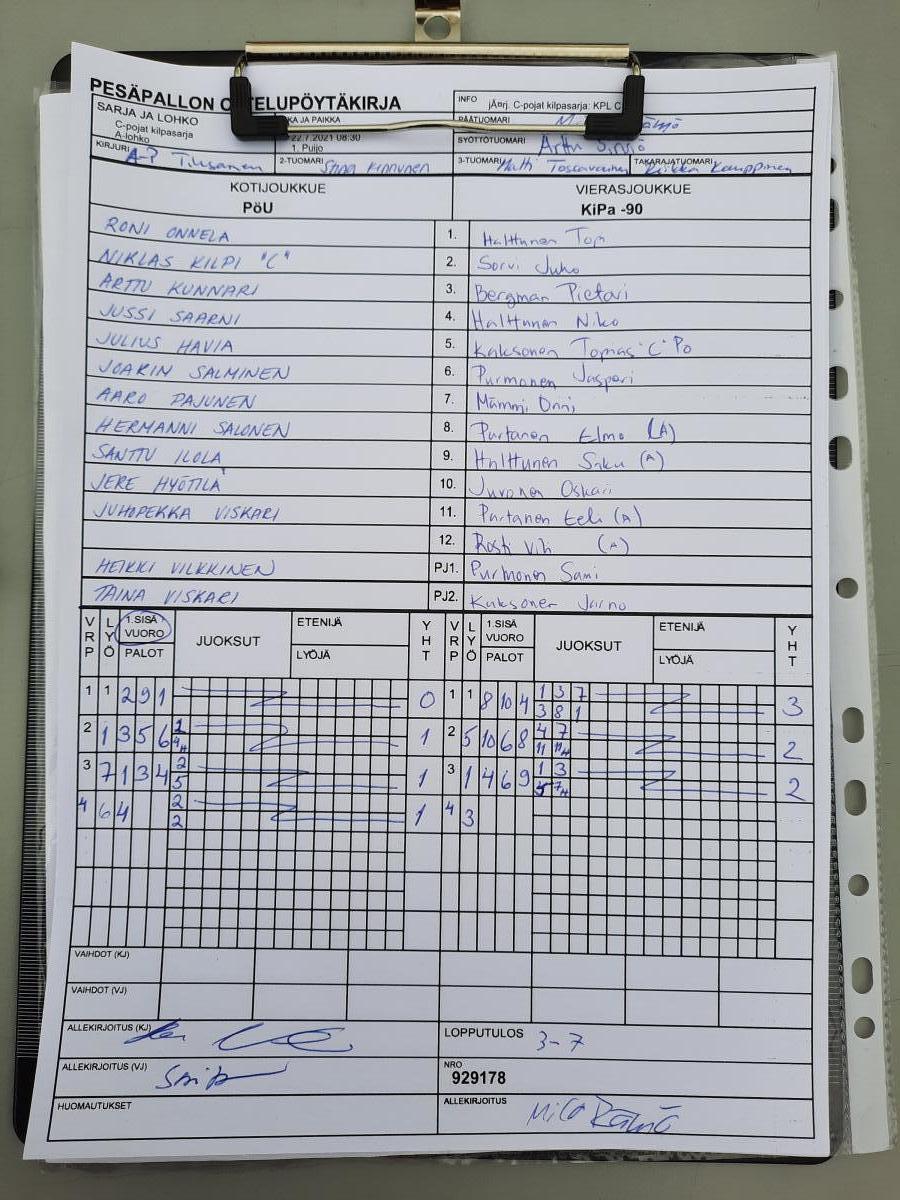 PESÄPALLON OTTELUPÖYTÄKIRJA
SARJA JA LOHKO
C-pojat kilpasarja
A-lohko
KA JA PAIKKA
22.7.2021 08:30
1. Puijo
INFO jÄ¤rj. C-pojat kilpasarja: KPL C
PÄÄTUOMARI
SYÖTTÖTUOMARI Arttu
KIRJURI A-P Tiusanen
2-TUOMARI
3-TUOMARI Matti
TAKARAJATUOMARI Kauppinen
KOTIJOUKKUE
PöU
VIERASJOUKKUE
KiPa -90
RONI ONNELA 1. Halttunen Topi
NIKLAS KILPI "C" 2. Sorvi Juho
ARTTU KUNNARI 3. Bergman Pietari
JUSSI SAARNI 4. Halttunen Niko
JULIUS HAVIA 5. Kaksonen Topias "C" Po
JOAKIN SALMINEN 6. Purmonen Jaspari
AARO PAJUNEN 7. Mämmi Onni
HERMANNI SALONEN 8. Partanen Elmo (A)
SANTTU ILOLA 9. Halttunen Saku (A)
JERE HYÖTILÄ 10. Juvonen Oskari
JUHOPEKKA VISKARI 11. Partanen Eeli (A)
12. Rosti Vili (A)
HEIKKI VILKKINEN PJ1. Purmonen Sami
TAINA VISKARI PJ2. Kaksonen Jarno
VRP LYÖ 1.SISÄ VUORO PALOT JUOKSUT ETENIJÄ LYÖJÄ YHT VRP LYÖ 1.SISÄ VUORO PALOT JUOKSUT ETENIJÄ LYÖJÄ YHT
1 1 2 9 1 0 1 1 8 10 4 1 3 7 3
3 8 1
2 1 3 5 6 2 1 2 5 10 6 8 4 7 2
4H 11 11H
3 7 1 3 4 2 1 3 1 4 6 9 1 3 2
5 5 7H
4 6 4 2 1 4 3
2
VAIHDOT (KJ)
VAIHDOT (VJ)
ALLEKIRJOITUS (KJ)
LOPPUTULOS 3-7
ALLEKIRJOITUS (VJ)
NRO
929178
HUOMAUTUKSET
ALLEKIRJOITUS Mico Rämö